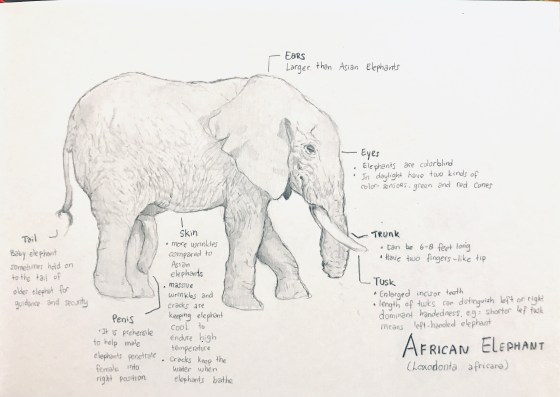 Ears
Larger than Asian Elephants
Eyes
• Elephants are colorblind
• In daylight have two kinds of
color sensors: green and red cones
Trunk
• Can be 6-8 feet long
• Have two fingers-like tip
Tusk
• Enlarged incisor teeth
• length of tusks can distinguish left or right
dominant handedness, e.g: shorter left tusk
means left-handed elephant
Tail
Baby elephant
sometimes hold on
to the tail of
older elephat for
guidance and security
Skin
• more wrinkles
compared to
Asian
elephants
• massive
wrinkles and
cracks are
keeping elephant
cool to
endure high
temperature
• cracks keep the
water when
elephants bathe
Penis
It is prehensile
to help male
elephants penetrate
female into
right position
AFRICAN ELEPHANT
(Loxodonta africana)